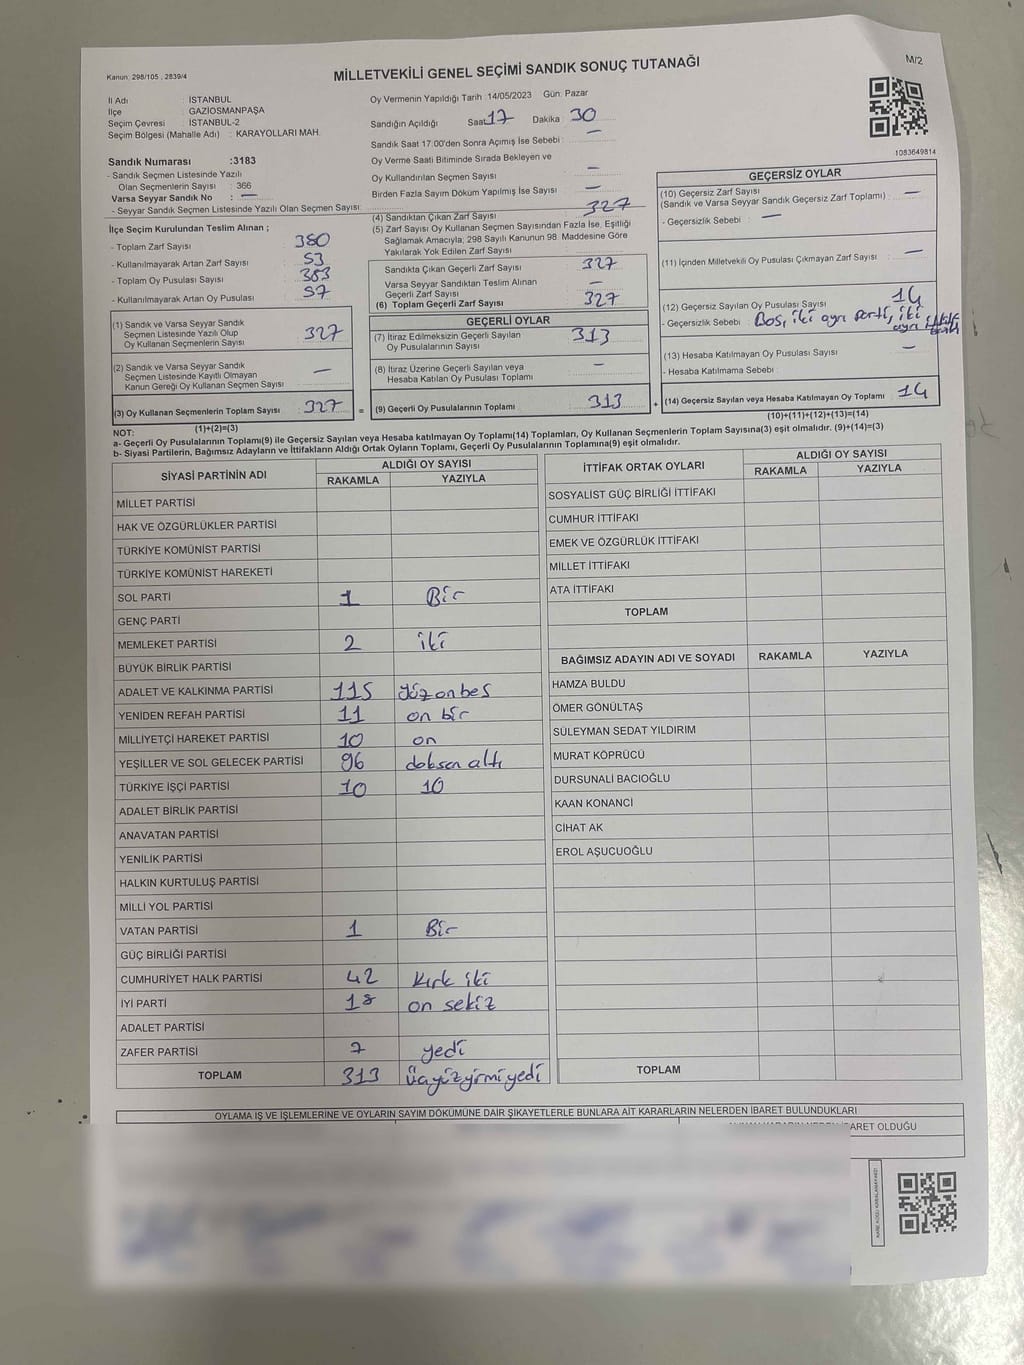 Kanun: 298/105 , 2839/4
MİLLETVEKİLİ GENEL SEÇİMİ SANDIK SONUÇ TUTANAĞI
M/2
İl Adı : İSTANBUL
İlçe : GAZİOSMANPAŞA
Seçim Çevresi : İSTANBUL-2
Seçim Bölgesi (Mahalle Adı) : KARAYOLLARI MAH.
Sandık Numarası :3183
- Sandık Seçmen Listesinde Yazılı
Olan Seçmenlerin Sayısı : 366
Varsa Seyyar Sandık No : —
- Seyyar Sandık Seçmen Listesinde Yazılı Olan Seçmen Sayısı:
İlçe Seçim Kurulundan Teslim Alınan ;
- Toplam Zarf Sayısı : 380
- Kullanılmayarak Artan Zarf Sayısı : 53
- Toplam Oy Pusulası Sayısı : 383
- Kullanılmayarak Artan Oy Pusulası : 57
(1) Sandık ve Varsa Seyyar Sandık
Seçmen Listesinde Yazılı Olup
Oy Kullanan Seçmenlerin Sayısı : 327
(2) Sandık ve Varsa Seyyar Sandık
Seçmen Listesinde Kayıtlı Olmayan
Kanun Gereği Oy Kullanan Seçmen Sayısı : —
(3) Oy Kullanan Seçmenlerin Toplam Sayısı : 327
(1)+(2)=(3)
Oy Vermenin Yapıldığı Tarih :14/05/2023 Gün: Pazar
Sandığın Açıldığı Saat 17 Dakika 30
Sandık Saat 17:00'den Sonra Açımış İse Sebebi : —
Oy Verme Saati Bitiminde Sırada Bekleyen ve
Oy Kullandırılan Seçmen Sayısı : —
Birden Fazla Sayım Döküm Yapılmış İse Sayısı : —
(4) Sandıktan Çıkan Zarf Sayısı : 327
(5) Zarf Sayısı Oy Kullanan Seçmen Sayısından Fazla İse, Eşitliği
Sağlamak Amacıyla, 298 Sayılı Kanunun 98. Maddesine Göre
Yakılarak Yok Edilen Zarf Sayısı :
Sandıkta Çıkan Geçerli Zarf Sayısı : 327
Varsa Seyyar Sandıktan Teslim Alınan
Geçerli Zarf Sayısı : —
(6) Toplam Geçerli Zarf Sayısı : 327
GEÇERLİ OYLAR
(7) İtiraz Edilmeksizin Geçerli Sayılan
Oy Pusulalarının Sayısı : 313
(8) İtiraz Üzerine Geçerli Sayılan veya
Hesaba Katılan Oy Pusulası Toplamı : —
= (9) Geçerli Oy Pusulalarının Toplamı : 313
1083649814
GEÇERSİZ OYLAR
(10) Geçersiz Zarf Sayısı
(Sandık ve Varsa Seyyar Sandık Geçersiz Zarf Toplamı) : —
- Geçersizlik Sebebi : —
(11) İçinden Milletvekili Oy Pusulası Çıkmayan Zarf Sayısı : —
(12) Geçersiz Sayılan Oy Pusulası Sayısı : 14
- Geçersizlik Sebebi : Boş, iki ayrı parti, iki
ayrı
(13) Hesaba Katılmayan Oy Pusulası Sayısı : —
- Hesaba Katılmama Sebebi :
+ (14) Geçersiz Sayılan veya Hesaba Katılmayan Oy Toplamı : 14
(10)+(11)+(12)+(13)=(14)
NOT:
a- Geçerli Oy Pusulalarının Toplamı(9) ile Geçersiz Sayılan veya Hesaba katılmayan Oy Toplamı(14) Toplamları, Oy Kullanan Seçmenlerin Toplam Sayısına(3) eşit olmalıdır. (9)+(14)=(3)
b- Siyasi Partilerin, Bağımsız Adayların ve İttifakların Aldığı Ortak Oyların Toplamı, Geçerli Oy Pusulalarının Toplamına(9) eşit olmalıdır.
SİYASİ PARTİNİN ADI ALDIĞI OY SAYISI
RAKAMLA YAZIYLA
MİLLET PARTİSİ
HAK VE ÖZGÜRLÜKLER PARTİSİ
TÜRKİYE KOMÜNİST PARTİSİ
TÜRKİYE KOMÜNİST HAREKETİ
SOL PARTİ 1 Bir
GENÇ PARTİ
MEMLEKET PARTİSİ 2 iki
BÜYÜK BİRLİK PARTİSİ
ADALET VE KALKINMA PARTİSİ 115 yüzonbes
YENİDEN REFAH PARTİSİ 11 on bir
MİLLİYETÇİ HAREKET PARTİSİ 10 on
YEŞİLLER VE SOL GELECEK PARTİSİ 96 doksan altı
TÜRKİYE İŞÇİ PARTİSİ 10 10
ADALET BİRLİK PARTİSİ
ANAVATAN PARTİSİ
YENİLİK PARTİSİ
HALKIN KURTULUŞ PARTİSİ
MİLLİ YOL PARTİSİ
VATAN PARTİSİ 1 Bir
GÜÇ BİRLİĞİ PARTİSİ
CUMHURİYET HALK PARTİSİ 42 Kırk iki
İYİ PARTİ 18 on sekiz
ADALET PARTİSİ
ZAFER PARTİSİ 7 yedi
TOPLAM 313
İTTİFAK ORTAK OYLARI ALDIĞI OY SAYISI
RAKAMLA YAZIYLA
SOSYALİST GÜÇ BİRLİĞİ İTTİFAKI
CUMHUR İTTİFAKI
EMEK VE ÖZGÜRLÜK İTTİFAKI
MİLLET İTTİFAKI
ATA İTTİFAKI
TOPLAM
BAĞIMSIZ ADAYIN ADI VE SOYADI RAKAMLA YAZIYLA
HAMZA BULDU
ÖMER GÖNÜLTAŞ
SÜLEYMAN SEDAT YILDIRIM
MURAT KÖPRÜCÜ
DURSUNALİ BACIOĞLU
KAAN KONANCİ
CİHAT AK
EROL AŞUCUOĞLU
TOPLAM
OYLAMA İŞ VE İŞLEMLERİNE VE OYLARIN SAYIM DÖKÜMÜNE DAİR ŞİKAYETLERLE BUNLARA AİT KARARLARIN NELERDEN İBARET BULUNDUKLARI
OLDUĞU